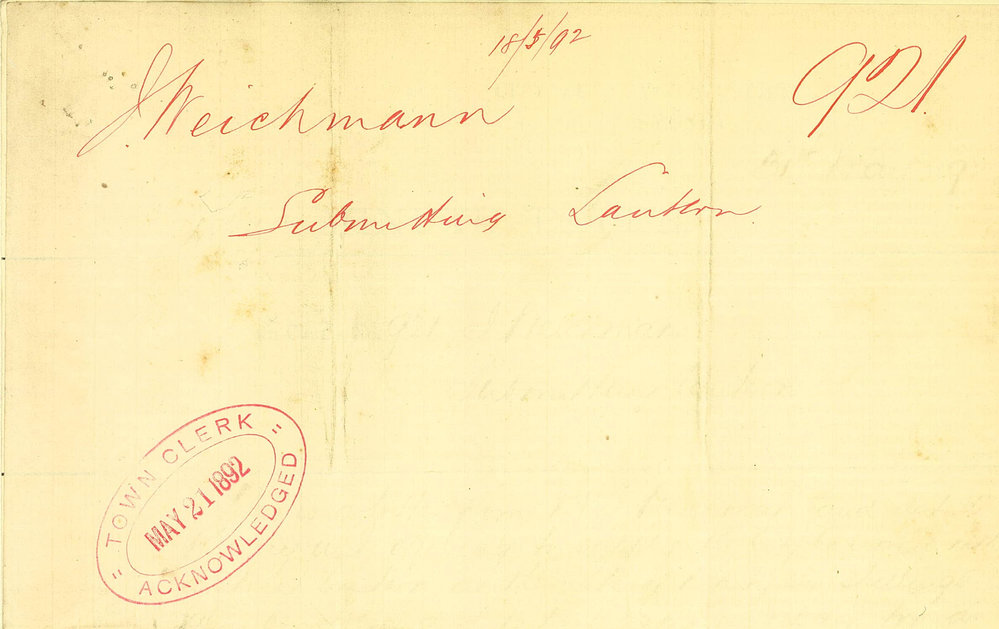 18/5/92
921
J Weichmann
Submitting Lantern
TOWN CLERK
MAY 21 1892
ACKNOWLEDGED